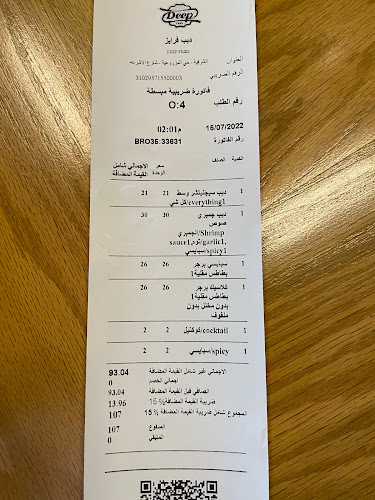 Deep
ديب فرايز
العنوان الشرقية - حي المزروعية - شارع الاشرعه
الرقم الضريبي 310295715500003
فاتورة ضريبية مبسطة
رقم الطلب O:4
15/07/2022 02:01م
رقم الفاتورة BRO35:33631
الكمية الصنف سعر الوحدة الاجمالي شامل القيمة المضافة
1 ديب سيجنيتشر وسط 21 21
everything1/كل شي
1 ديب جمبري 30 30
صوص
Shrimp/الجمبري
sauce1,ثوم/garlic1,
spicy1/سبايسي
1 سبايسي برجر 26 26
بطاطس مقلية1
1 كلاسيك برجر 26 26
بطاطس مقلية1
بدون مخلل بدون
ملفوف
1 cocktail/كوكتيل 2 2
1 spicy/سبايسي 2 2
الاجمالي غير شامل القيمة المضافة 93.04
اجمالي الخصم 0
الصافي قبل القيمة المضافة 93.04
ضريبة القيمة المضافة 15% 13.96
المجموع شامل ضريبة القيمة المضافة % 15 107
المدفوع 107
المتبقي 0